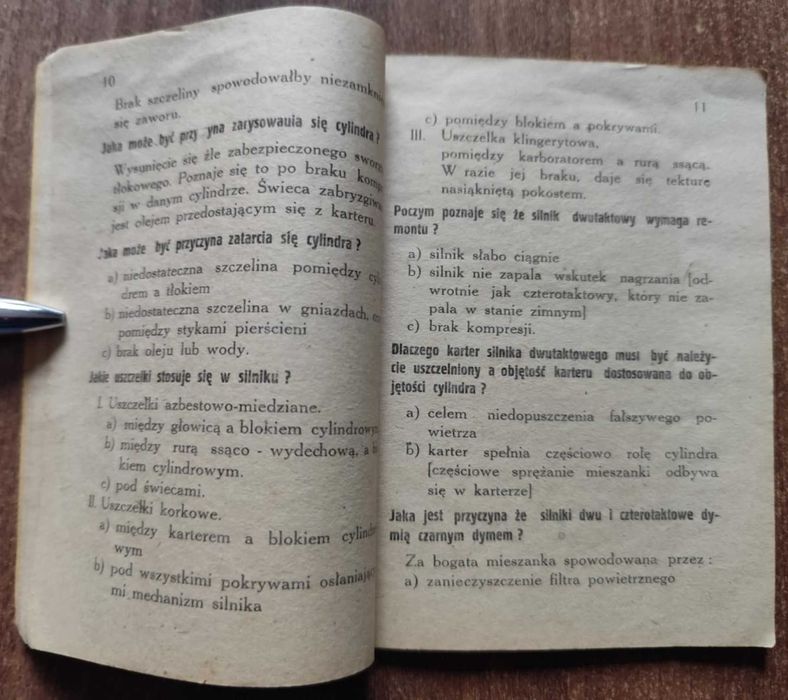 10
Brak szczeliny spowodowałby niezamknię
się zaworu.
Jaka może być przy yna zarysowania się cylindra ?
Wysunięcie się źle zabezpieczonego sworz
tłokowego. Poznaje się to po braku kompr
sji w danym cylindrze. Świeca zabryzgiwa
jest olejem przedostającym się z karteru.
Jaka może być przyczyna zatarcia się cylindra ?
a) niedostateczna szczelina pomiędzy cy
drem a tłokiem
b) niedostateczna szczelina w gniazdach,
pomiędzy stykami pierścieni
c) brak oleju lub wody.
Jakie uszczelki stosuje się w silniku ?
I. Uszczelki azbestowo-miedziane.
a) między głowicą a blokiem cylindrowym
b) między rurą ssąco - wydechową, a b
kiem cylindrowym.
c) pod świecami.
II. Uszczełki korkowe.
a) między karterem a blokiem cylindr
wym
b) pod wszystkimi pokrywami osłaniając
mi mechanizm silnika
11
c) pomiędzy blokiem a pokrywami.
III. Uszczelka klingerytowa,
pomiędzy karboratorem a rurą ssącą.
W razie jej braku, daje się tekturę
nasiąkniętą pokostem.
Poczym poznaje się że silnik dwutaktowy wymaga re-
montu ?
a) silnik słabo ciągnie
b) silnik nie zapala wskutek nagrzania [od-
wrotnie jak czterotaktowy, który nie za-
pala w stanie zimnym]
c) brak kompresji.
Dlaczego karter silnika dwutaktowego musi być należy-
cie uszczelniony a objętość karteru dostosowana do ob-
jętości cylindra ?
a) celem niedopuszczenia fałszywego po-
wietrza
b) karter spełnia częściowo rolę cylindra
[częściowe sprężanie mieszanki odbywa
się w karterze]
Jaka jest przyczyna że silniki dwu i czterotaktowe dy-
mią czarnym dymem ?
Za bogata mieszanka spowodowana przez :
a) zanieczyszczenie filtra powietrznego